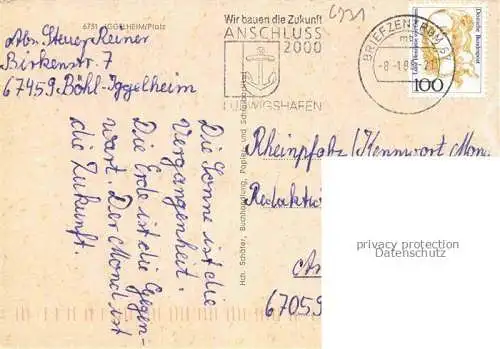 6731 IGGELHEIM/Pfalz
Abs. Steuer Reiner
Birkenstr. 7
67459 Böhl-Iggelheim
Wir bauen die Zukunft
ANSCHLUSS
2000
LUDWIGSHAFEN
6731
BRIEFZENTRUM 67
mb
-8.-1.99-21
Deutsche Bundespost
100
Die Sonne ist die
Vergangenheit.
Die Erde ist die Gegen-
wart. Der Mond ist
die Zukunft.
Hch. Schäfer, Buchhandlung, Papier- und
Rheinpfalz/Kennwort Mon
Redaktion
67059
privacy protection
Datenschutz